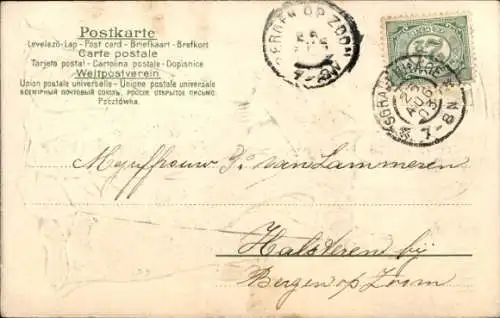 Postkarte
Levelező-Lap - Post card - Briefkaart - Brefkort
Carte postale
Tarjeta postal - Cartolina postale - Dopisnice
Weltpostverein
Union postale universelle - Unione postale universale
ВСЕМІРНЫЙ ПОЧТОВЫЙ СОЮЗЪ, РОССІЯ ОТКРЫТОЕ ПИСЬМО
Pocztówka
BERGEN OP ZOOM
'S GRAVENHAGE
7-8N
Mejuffrouw J. van Lammeren
Halsteren bij
Bergen op Zoom